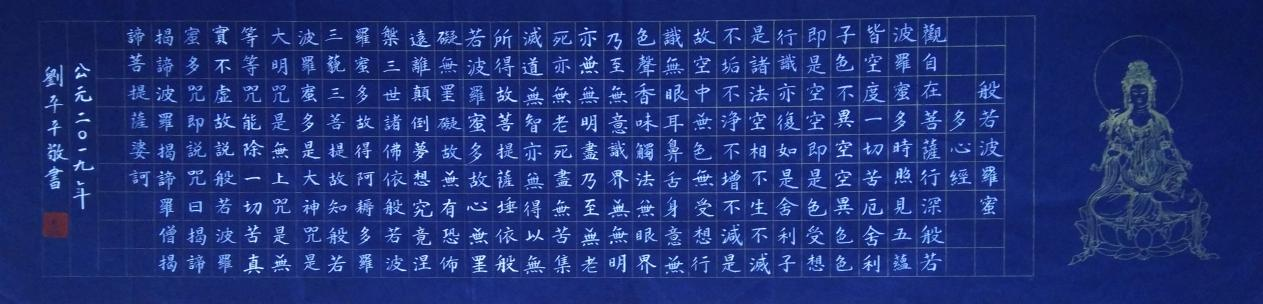 般若波羅蜜
多心經
觀自在菩薩行深般若
波羅蜜多時照見五蘊
皆空度一切苦厄舍利
子色不異空空異色色
即是空空即是色受想
行識亦復如是舍利子
是諸法空相不生不滅
不垢不淨不增不減是
故空中無色無受想行
識無眼耳鼻舌身意無
色聲香味觸法無眼界
乃至無意識界無無明
亦無無明盡乃至無老
死亦無老死盡無苦集
滅道無智亦無得以無
所得故菩提薩埵依般
若波羅蜜多故心無罣
礙無罣礙故無有恐佈
遠離顛倒夢想究竟涅
槃三世諸佛依般若波
羅蜜多故得阿耨多羅
三藐三菩提故知般若
波羅蜜多是大神咒是
大明咒是無上咒是無
等等咒能除一切苦真
實不虛故說般若波羅
蜜多咒即説咒曰揭諦
揭諦波羅揭諦羅僧揭
諦菩提薩婆訶
公元二〇一九年
劉平平敬書